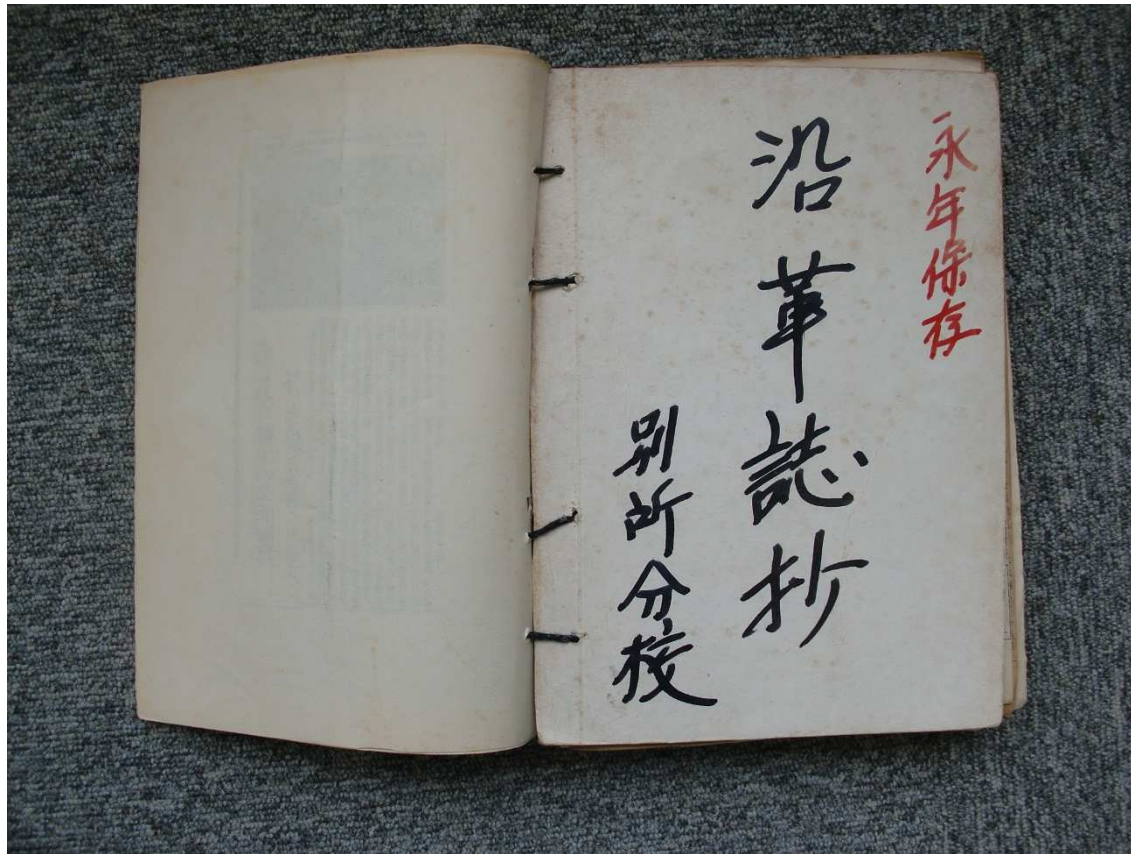 永年保存
沿革誌抄
別所分校